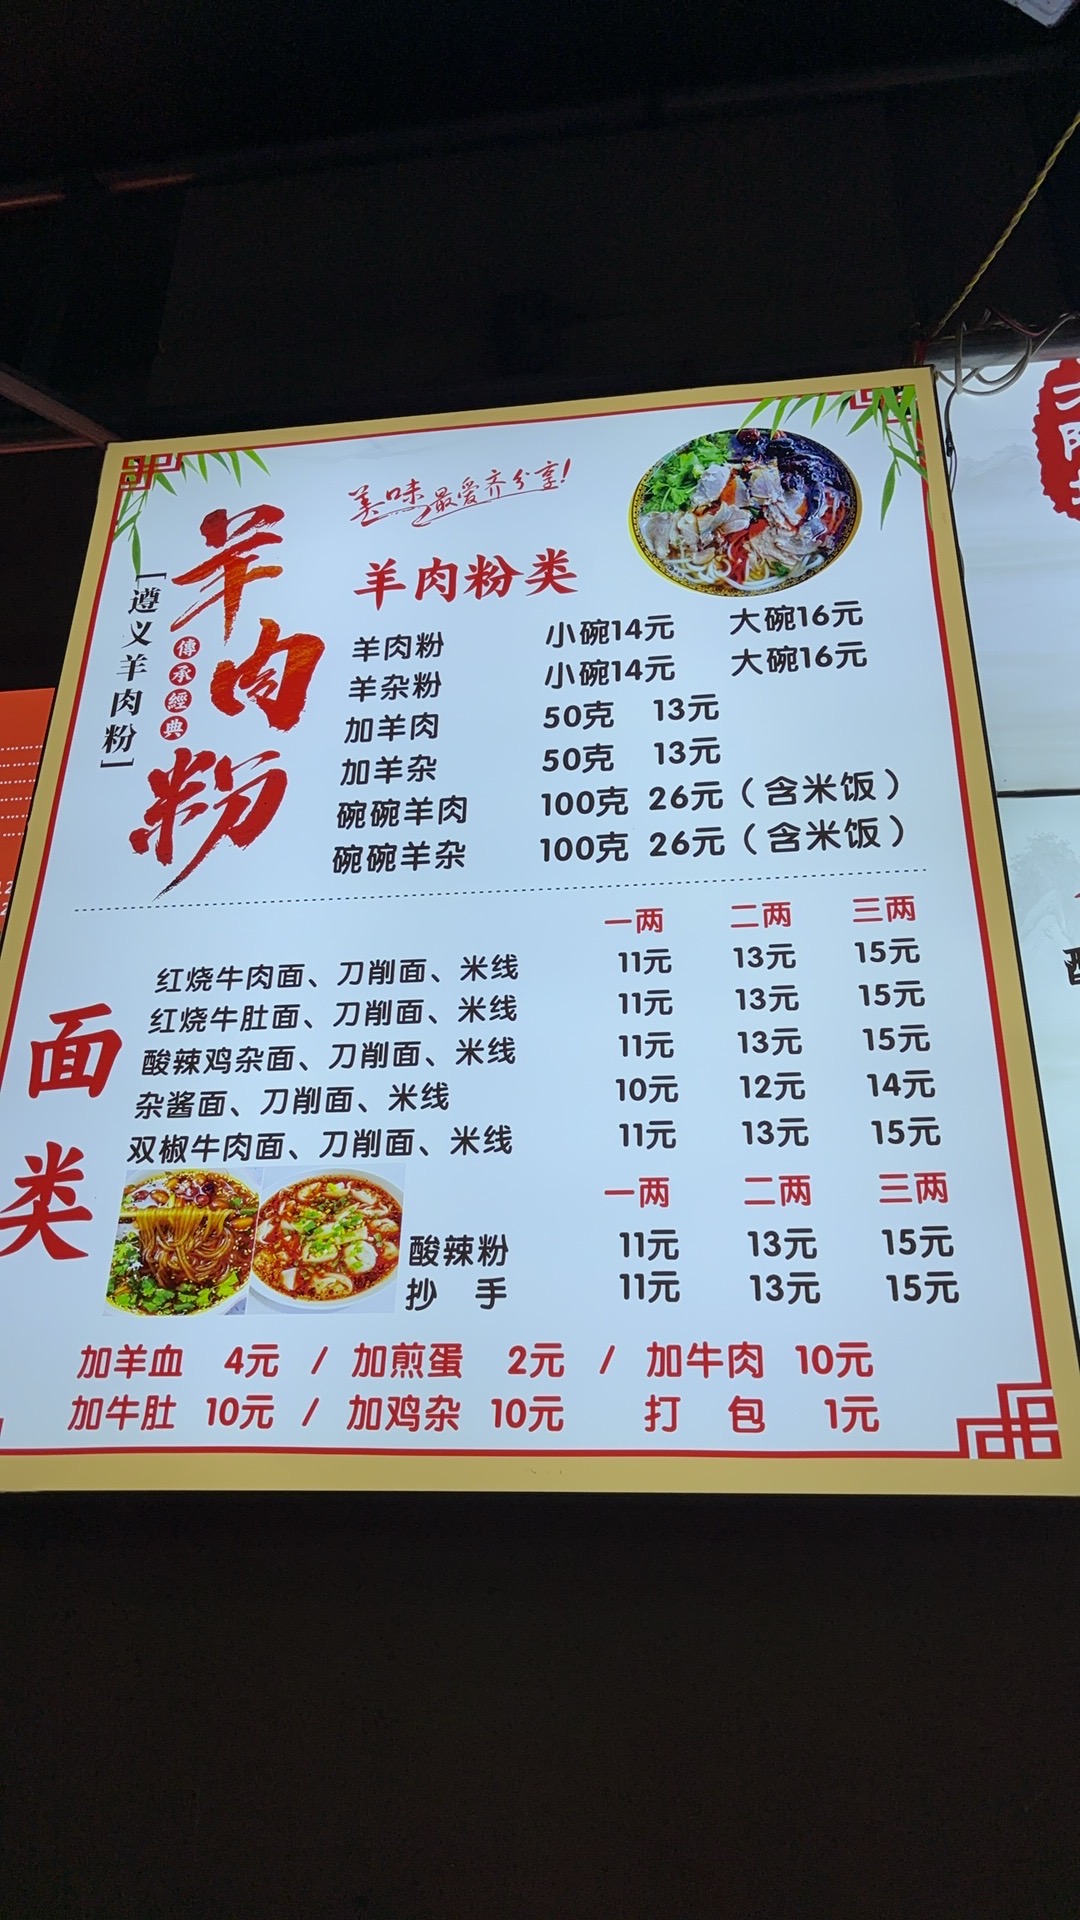 美味最爱齐分享!
羊肉粉
[遵义羊肉粉]
傳承經典
羊肉粉类
羊肉粉 小碗14元 大碗16元
羊杂粉 小碗14元 大碗16元
加羊肉 50克 13元
加羊杂 50克 13元
碗碗羊肉 100克 26元（含米饭）
碗碗羊杂 100克 26元（含米饭）
面类
一两 二两 三两
红烧牛肉面、刀削面、米线 11元 13元 15元
红烧牛肚面、刀削面、米线 11元 13元 15元
酸辣鸡杂面、刀削面、米线 11元 13元 15元
杂酱面、刀削面、米线 10元 12元 14元
双椒牛肉面、刀削面、米线 11元 13元 15元
一两 二两 三两
酸辣粉 11元 13元 15元
抄 手 11元 13元 15元
加羊血 4元 / 加煎蛋 2元 / 加牛肉 10元
加牛肚 10元 / 加鸡杂 10元 打 包 1元